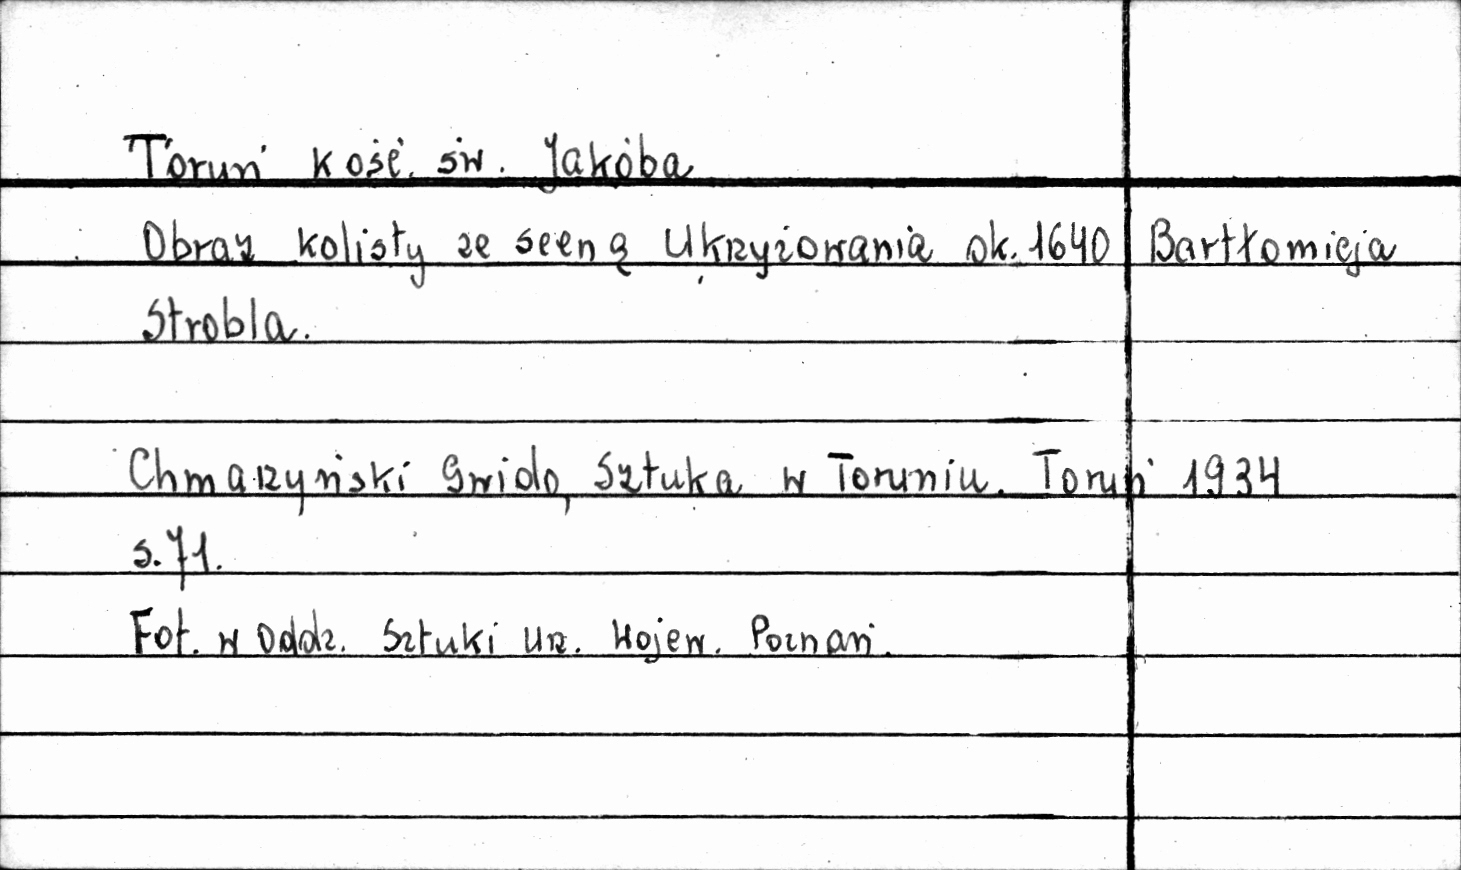 Toruń kość. św. Jakóba
Obraz kolisty ze sceną Ukrzyżowania ok. 1640 Bartłomieja
Strobla.
Chmarzyński Gwido, Sztuka w Toruniu. Toruń 1934
s. 71.
Fot. w Oddz. Sztuki Urz. Wojew. Poznań.